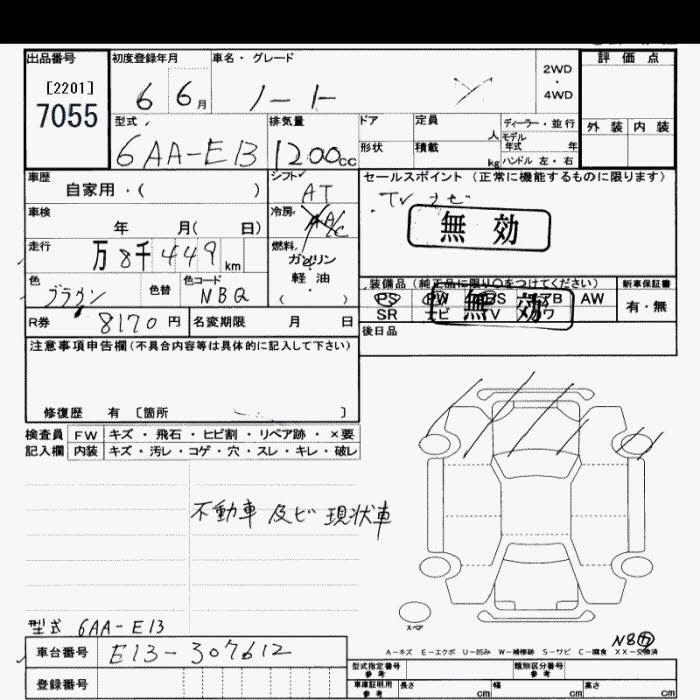 出品番号
[2201]
7055
初度登録年月
6 6月
車名・グレード
ノート X
2WD
・
4WD
評価点
外装 内装
型式
6AA-E13
排気量
1200cc
ドア
形状
定員 人
積載 kg
ディーラー・並行
モデル年式 年
ハンドル 左・右
車歴
自家用・( )
シフト
AT
セールスポイント (正常に機能するものに限ります)
TV ナビ
無効
車検
年 月( 日)
冷房
AC
走行
万8千449km
燃料
ガソリン
軽油
( )
色
ブラウン
色替
色コード
NBQ
装備品 (純正品に限り○をつけてください)
PS PW AB AW
SR ナビ TV カワ
無効
新車保証書
有・無
R券 8170円
名変期限 月 日
後日品
注意事項申告欄(不具合内容等は具体的に記入して下さい)
修復歴 有 [箇所 ]
検査員 FW キズ・飛石・ヒビ割・リペア跡・×要
記入欄 内装 キズ・汚レ・コゲ・穴・スレ・キレ・破レ
不動車 及ビ 現状車
スペア
型式 6AA-E13
A-キズ E-エクボ U-凹み W-補修跡 S-サビ C-腐食 XX-交換済
車台番号 E13-307612
登録番号
型式指定番号
参考
類別区分番号
参考
車庫証明用
参考
長さ cm 幅 cm 高さ cm